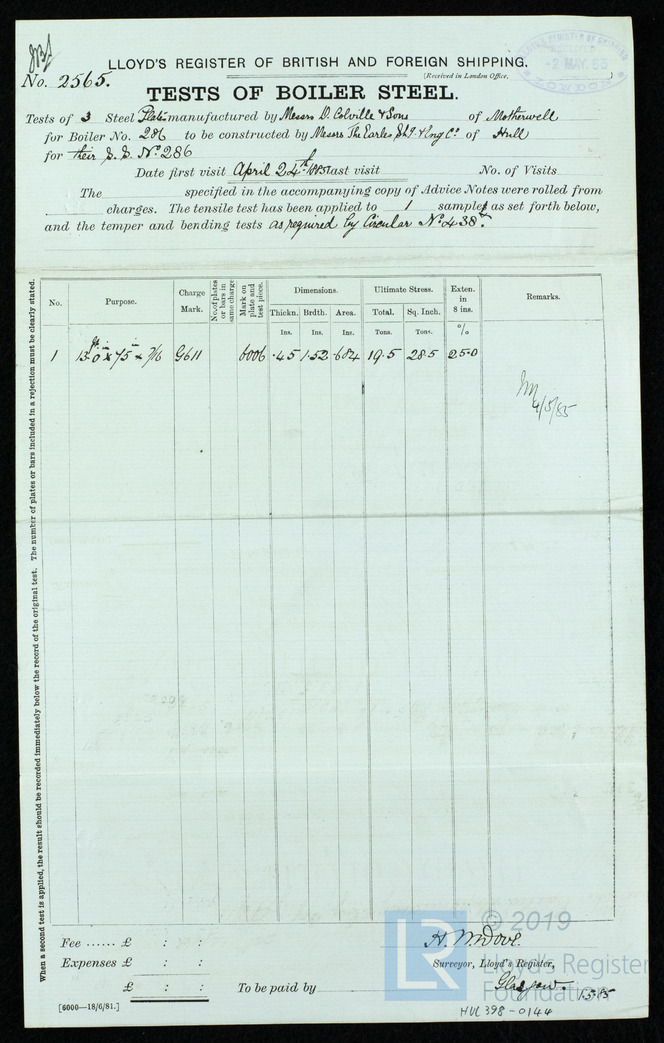 LLOYD'S REGISTER OF BRITISH AND FOREIGN SHIPPING.
No. 2565.
(Received in London Office, )
2 MAY. 85
LONDON
TESTS OF BOILER STEEL.
Tests of 3 Steel Plate manufactured by Messrs D. Colville & Sons of Motherwell
for Boiler No. 286 to be constructed by Messrs The Earles Sh. & Eng Co. of Hull
for their S.S. No 286
Date first visit April 24th 1885 last visit No. of Visits
The specified in the accompanying copy of Advice Notes were rolled from
charges. The tensile test has been applied to 1 samples as set forth below,
and the temper and bending tests as required by Circular No 438.
When a second test is applied, the result should be recorded immediately below the record of the original test. The number of plates or bars included in a rejection must be clearly stated.
No. Purpose. Charge Mark. No. of plates or bars in same charge Mark on plate and test piece. Dimensions. Ultimate Stress. Exten. in 8 ins. Remarks.
Thickn. Brdth. Area. Total. Sq. Inch.
Ins. Ins. Ins. Tons. Tons. %
1 13-0 x 75 x 7/16 9611 6006 .45 1.52 .684 19.5 28.5 25.0
4/5/85
Fee ...... £ : :
Expenses £ : :
£ : :
To be paid by
Surveyor, Lloyd's Register,
Glasgow. 1.5.85
[6000—18/6/81.]
HUL398-0144
LR © 2019
Lloyd's Register
Foundation